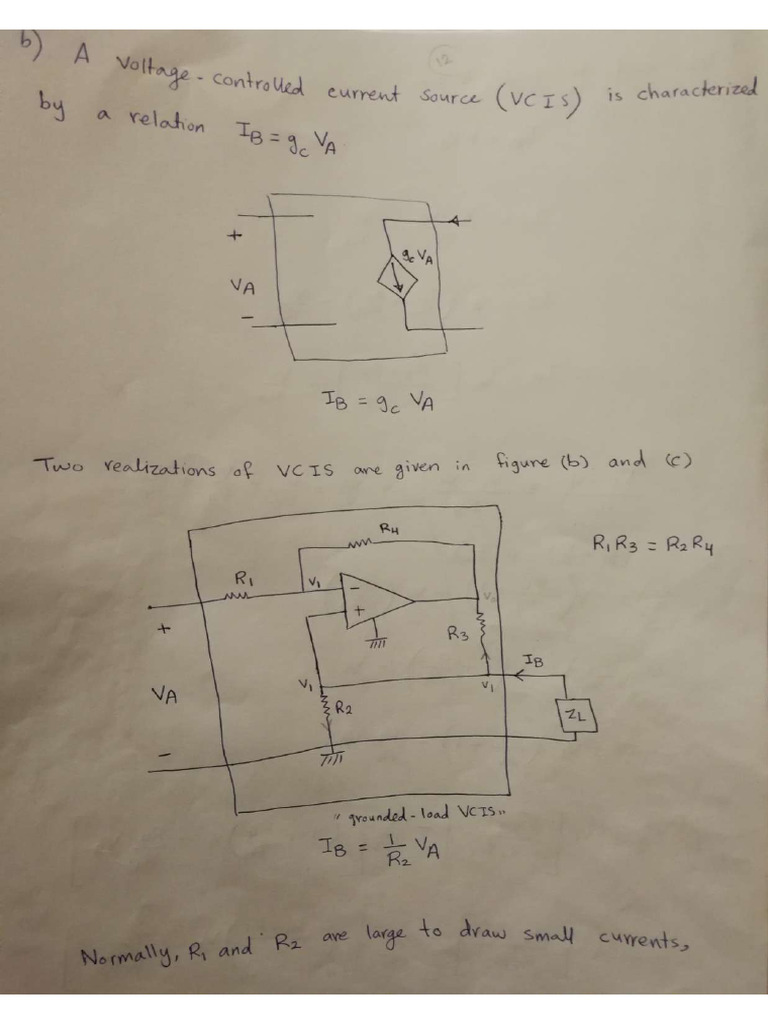 12
b) A Voltage-controlled current source (VCIS) is characterized
by a relation IB = gc VA
+
gc VA
VA
-
IB = gc VA
Two realizations of VCIS are given in figure (b) and (c)
R4
R1R3 = R2R4
R1
V1
-
+
Vo
+
R3
IB
V1
V1
VA
R2
ZL
-
"grounded-load VCIS"
IB = 1/R2 VA
Normally, R1 and R2 are large to draw small currents,